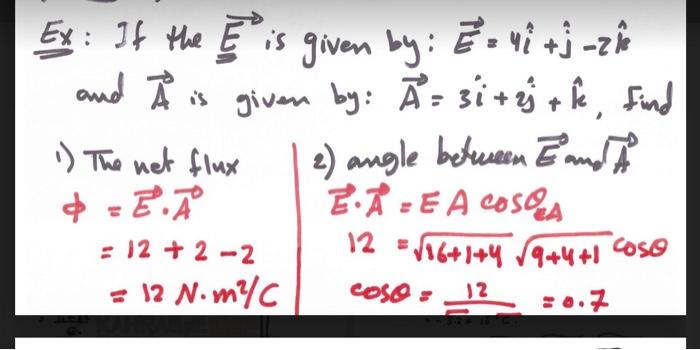 Ex: If the E⃗ is given by: E⃗ = 4î + ĵ - 2k̂
and A⃗ is given by: A⃗ = 3î + 2ĵ + k̂, find
1) The net flux
ϕ = E⃗ · A⃗
= 12 + 2 - 2
= 12 N·m²/C
2) angle between E⃗ and A⃗
E⃗ · A⃗ = E A cosθ_EA
12 = √16+1+4 √9+4+1 cosθ
cosθ = 12 / √ √ = 0.7